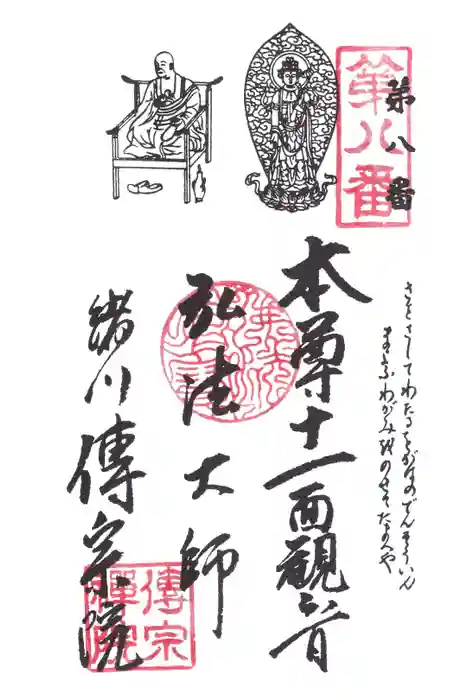 第八番
第八番
さとさしてわたるをがわのでんそういん
まよふわがみを のせたまへや
本尊十一面観音
弘法大師
緒川傳宗院
傳宗
禪院